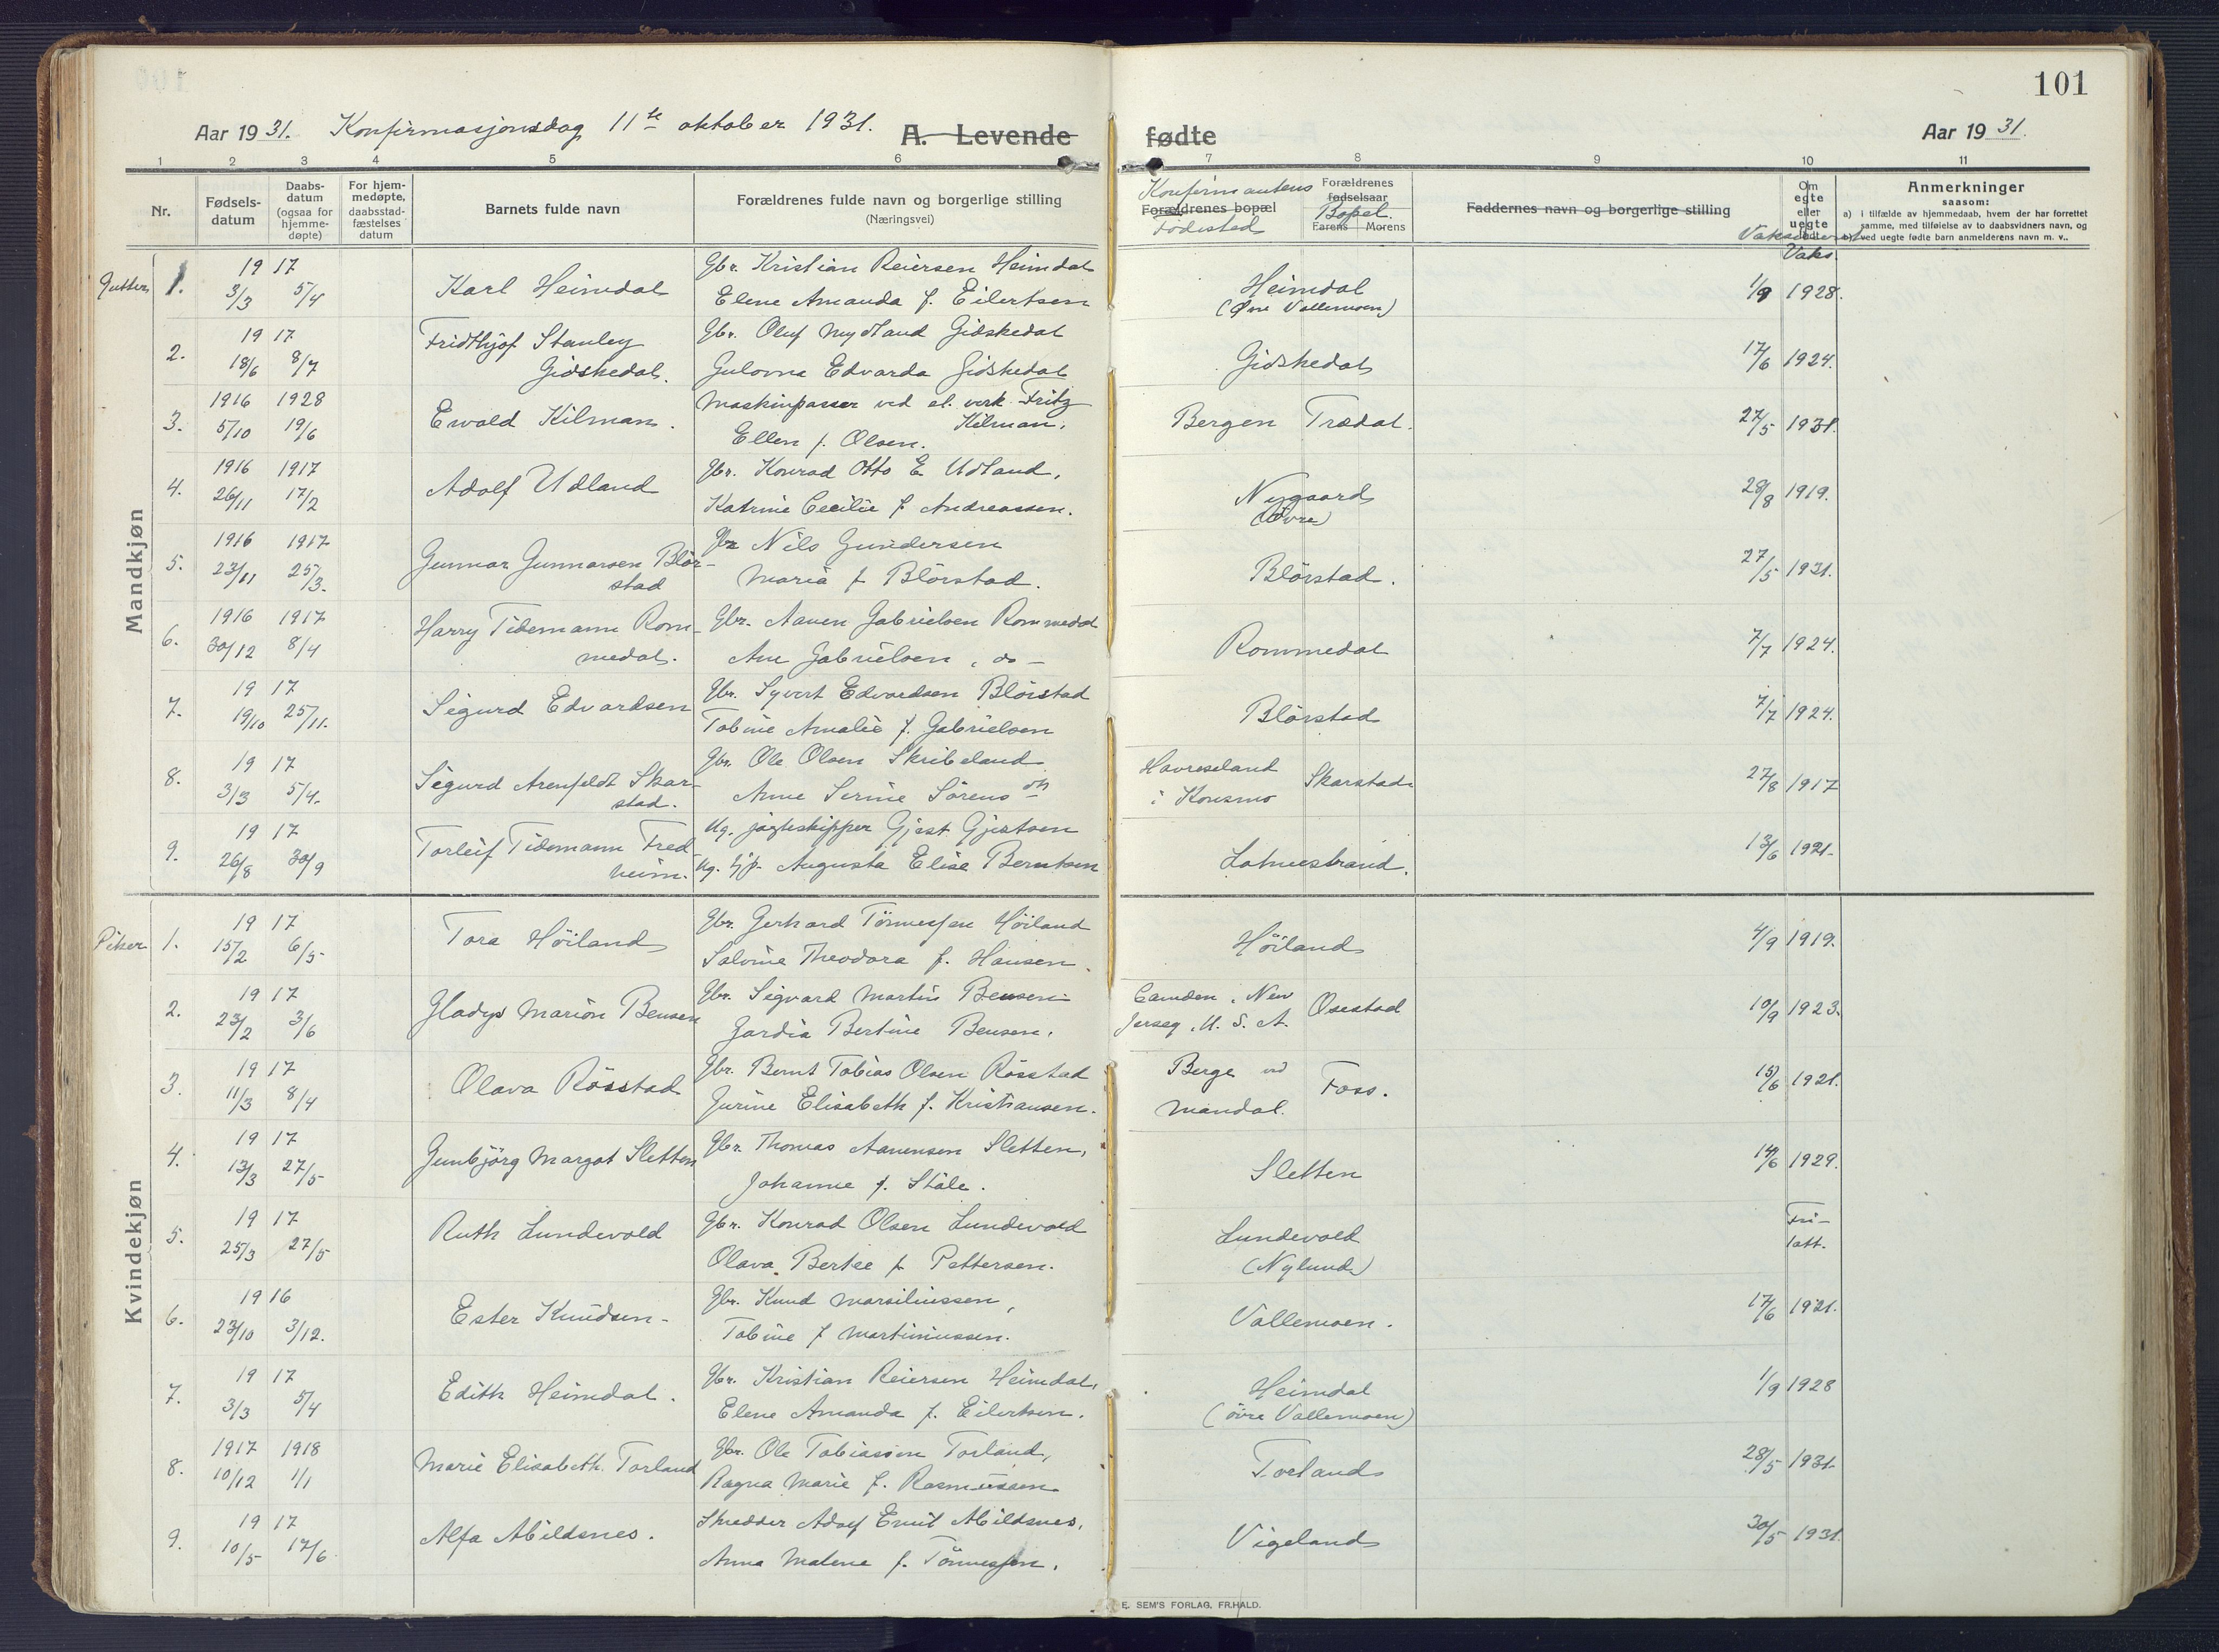 101
Aar 19 31. Konfirmasjonsdag 11te oktober 1931. A. Levende fødte Aar 19 31.
1 2 3 4 5 6 7 8 9 10 11
Nr.
Fødsels-
datum
Daabs-
datum
(ogsaa for
hjemme-
døpte)
For hjem-
medøpte,
daabsstad-
fæstelses
datum
Barnets fulde navn
Forældrenes fulde navn og borgerlige stilling
(Næringsvei)
Konfirmantens
Forældrenes bopæl
Fødested
Forældrenes
fødselsaar
Bopel.
Farens Morens
Faddernes navn og borgerlige stilling
Om
egte
eller
uegte
født
Vaks.
Anmerkninger
saasom:
a) i tilfælde av hjemmedaab, hvem der har forrettet
samme, med tilføielse av to daabsvidners navn, og
b) ved uegte fødte barn anmelderens navn m. v..
Mandkjøn
Gutter 1.
19 17
3/3 5/4
Karl Heimdal
Gbr. Kristian Reiersen Heimdal
Elene Amanda f. Eilertsen
Heimdal
(Øvre Vallemoen)
1/9 1928.
2.
19 17
18/6 8/7
Fridthjof Stanley
Gidskedal.
Gbr. Oluf Mydland Gidskedal
Gulovna Edvarda Gidskedal
Gidskedal
17/6 1924.
3.
1916 1928
5/10 19/6
Ewald Kilman.
Maskinpasser ved el. verk Fritz
Kilman,
Ellen f. Olsen.
Bergen Trædal.
27/5 1931.
4.
1916 1917
26/11 17/2
Adolf Udland
Gbr. Konrad Otto E Udland,
Katrine Cecilie f Andreassen.
Nygaard
(Øvre)
28/8 1919.
5.
1916 1917
23/11 25/3.
Gunnar Gunnarsen Blör-
stad
Gbr Nils Gundersen
Maria f Blörstad.
Blörstad.
27/5 1931.
6.
1916 1917
30/12 8/4
Harry Tidemann Rom-
medal.
Gbr. Aanen Gabrielsen Rommedal
Ane Gabrielsen, do -
Rommedal
7/7 1924.
7.
19 17
19/10 25/11.
Sigurd Edvardsen
Gbr. Syvert Edvardsen Blörstad
Tobine Amalie f. Gabrielsen
Blörstad
7/7 1924.
8.
19 17
3/3 5/4.
Sigurd Arenfeldt Skar-
stad.
Gbr. Ole Olsen Skribeland
Anne Serine Sörens dtr
Havreseland
i Konsmo
Skarstad
27/8 1917
9.
19 17
26/8 30/9
Torleif Tidemann Fred
heim.
Ug. jagteskipper Gjert Gjertsen
Ug. tjp. Augusta Elise Berntsen
13/6 1921.
Kvindekjøn
Piker 1.
19 17
15/2 6/5
Tora Höiland
Gbr. Gerhard Tönnessen Höiland
Salvine Theodora f. Hansen.
Höiland
4/9 1919.
2.
19 17
23/2 3/6
Gladys Marion Bensen
Gbr. Sigvard Martin Bensen
Gardia Bertine Bensen.
Camden, New
Jersey, U. S. A.
Osestad
10/9 1923.
3.
19 17
11/3 8/4
Olava Rösstad
Gbr. Bernt Tobias Olsen Rösstad
Gurine Elisabeth f. Kristiansen.
Berge ved
Mandal.
Foss.
15/6 1921.
4.
19 17
13/3 27/5
Gunbjörg Margot Sletten
Gbr. Thomas Aanensen Sletten,
Johanne f. Ståle.
Sletten
14/6 1929.
5.
19 17
25/3 27/5
Ruth Lundevold
Gbr. Konrad Olsen Lundevold
Olava Bertee f. Pettersen.
Lundevold
(Nylund)
Fri-
tatt.
6.
19 16
23/10 3/12.
Ester Knudsen
Gbr. Knud Marsiliussen,
Tobine f Martiniussen.
Vallemoen.
17/6 1921.
7.
19 17
3/3 5/4
Edith Heimdal.
Gbr. Kristian Reiersen Heimdal,
Elene Amanda f. Eilertsen.
Heimdal
(övre Vallemoen)
1/9 1928
8.
1917 1918
10/12 1/1
Marie Elisabeth Torland
Gbr. Ole Tobiassen Torland,
Ragna Marie f. Rasmussen
Torland
28/5 1931.
9.
19 17
10/5 17/6
Alfa Abildsnes.
Skredder Adolf Emil Abildsnes.
Anna Malene f. Tönnessen.
Vigeland
30/5 1931.
E. SEM'S FORLAG, FR.HALD.